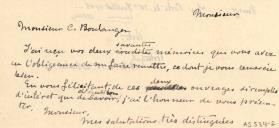 Monsieur
Monsieur C. Boulanger
savantes
J'ai reçu vos deux érudites mémoires que vous avez
eu l'obligeance de me faire remettre, ce dont je vous remercie
bien.
deux
En vous félicitant, de ces ouvrages si remplis
d'intérêt que de savoir, j'ai l'honneur de vous présen-
ter, Monsieur,
mes salutations très distinguées
AS 534-2